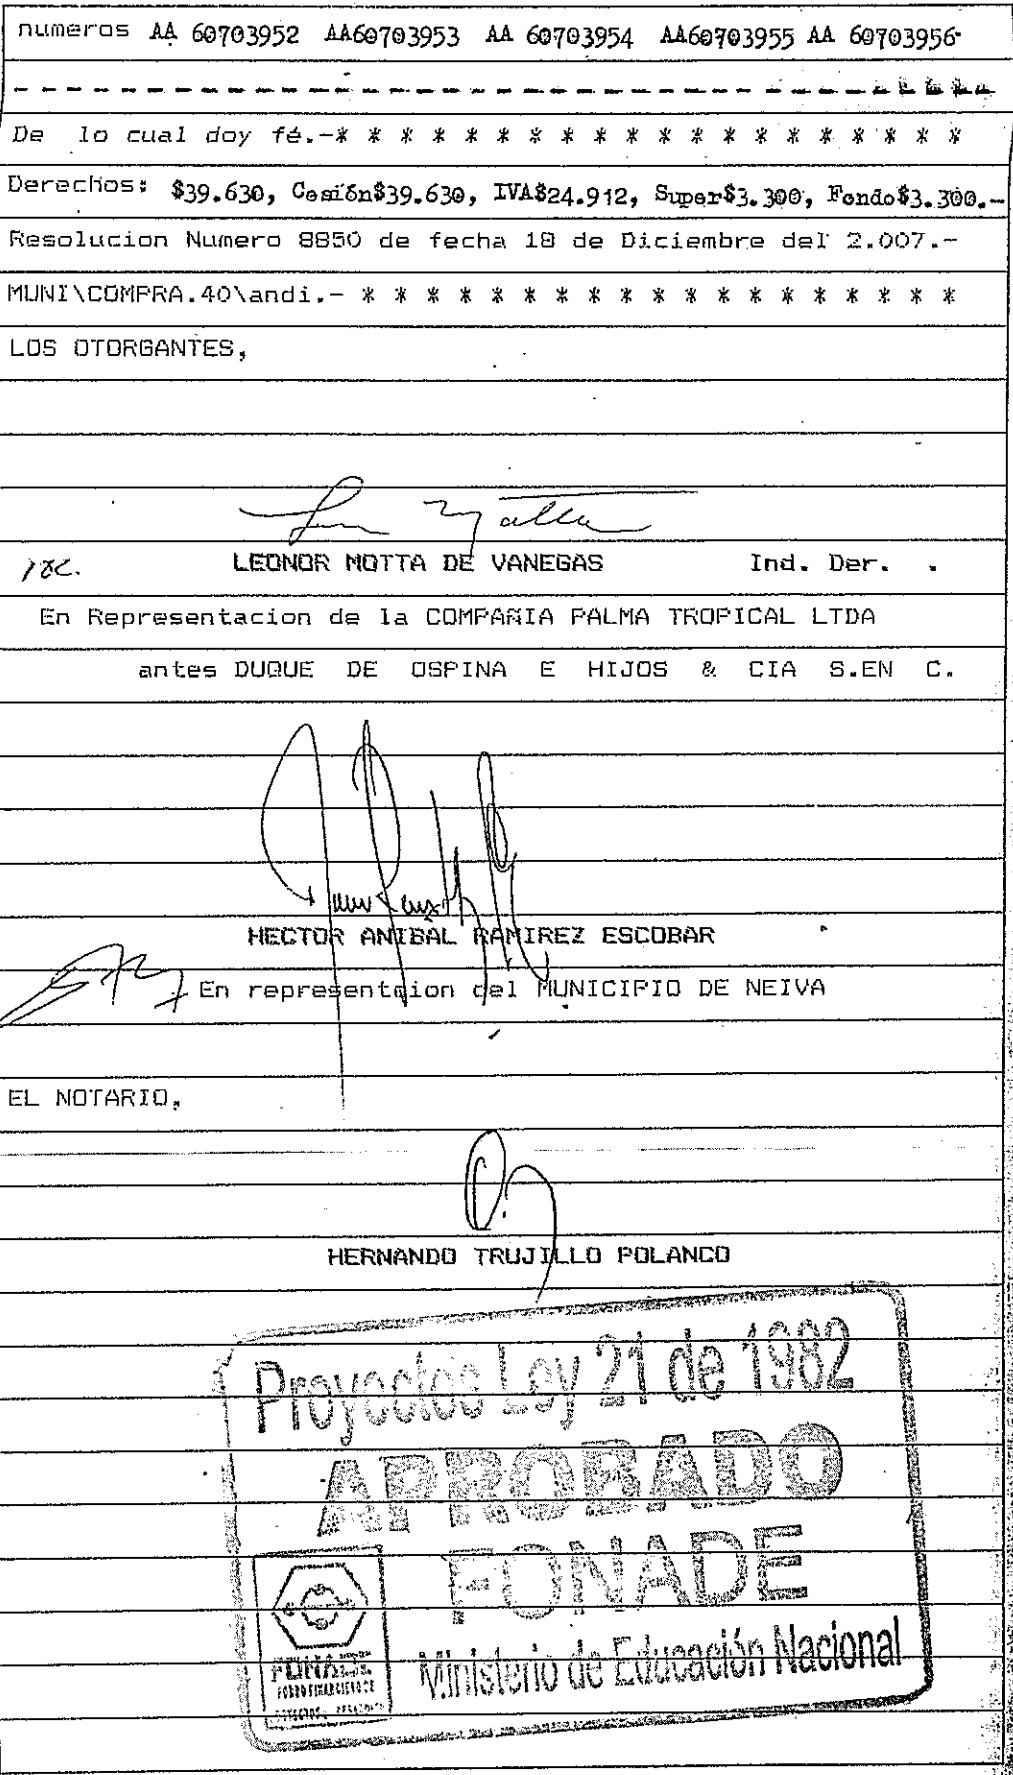 numeros AA 60703952 AA60703953 AA 60703954 AA60703955 AA 60703956-
De lo cual doy fé.-* * * * * * * * * * * * * * * * * * * *
Derechos: $39.630, Cesión$39.630, IVA$24.912, Super$3.300, Fondo$3.300.-
Resolucion Numero 8850 de fecha 18 de Diciembre del 2.007.-
MUNI\COMPRA.40\andi.- * * * * * * * * * * * * * * * * * * *
LOS OTORGANTES,
LEONOR MOTTA DE VANEGAS Ind. Der. .
En Representacion de la COMPAÑIA PALMA TROPICAL LTDA
antes DUQUE DE OSPINA E HIJOS & CIA S.EN C.
HECTOR ANIBAL RAMIREZ ESCOBAR
En representaion del MUNICIPIO DE NEIVA
EL NOTARIO,
HERNANDO TRUJILLO POLANCO
Proyectos Ley 21 de 1982
APROBADO
FONADE
Ministerio de Educación Nacional
FONADE